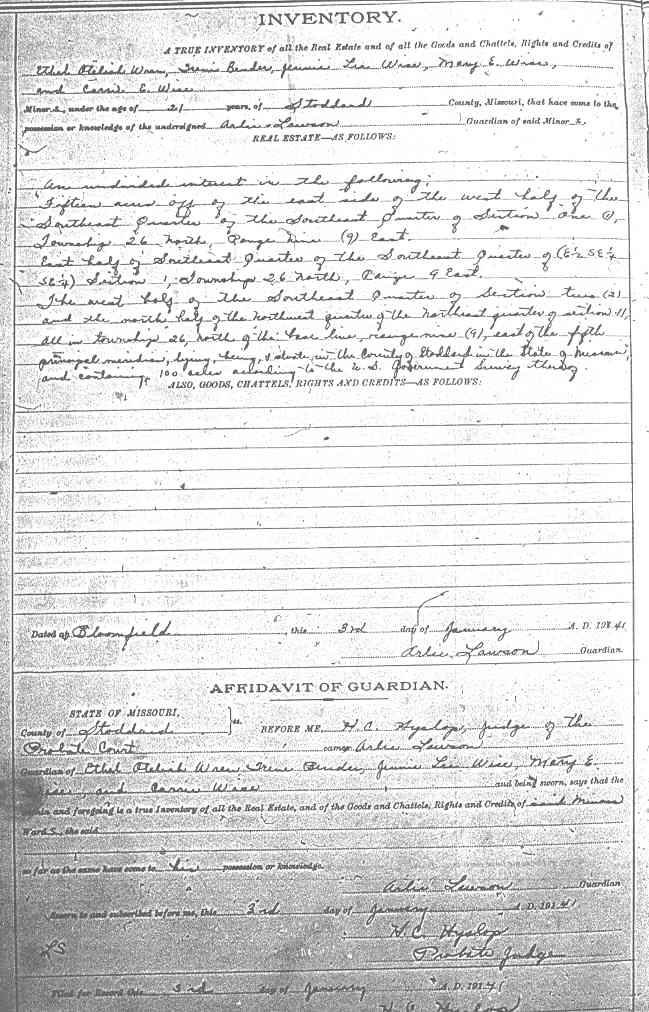 INVENTORY.
A TRUE INVENTORY of all the Real Estate and of all the Goods and Chattels, Rights and Credits of
Ethel Oteliah Wren, Irene Bender, Jennie Lee Wise, Mary E. Wise,
and Carrie E. Wise
Minor S, under the age of 21 years, of Stoddard County, Missouri, that have come to the
possession or knowledge of the undersigned Arlie Lawson Guardian of said Minor s.
REAL ESTATE—AS FOLLOWS:
An undivided interest in the following:
Fifteen acres off of the east side of the west half of the
Southeast Quarter of the Southeast Quarter of Section One (1),
Township 26 North, Range Nine (9) East.
East half of Southeast Quarter of the Southeast Quarter of (E½ SE¼
SE¼) Section 1, Township 26 North, Range 9 East.
The west half of the Southeast Quarter of Section two (2)
and the north half of the Northwest quarter of the Northeast quarter of section 11,
all in township 26, north of the base line, range nine (9), east of the fifth
principal meridian, lying, being, & situate, in the County of Stoddard in the State of Missouri,
and containing 100 acres according to the U.S. Government Survey thereof.
ALSO, GOODS, CHATTELS, RIGHTS AND CREDITS—AS FOLLOWS:
Dated at Bloomfield this 3rd day of January A. D. 19 41
Arlie Lawson Guardian.
AFFIDAVIT OF GUARDIAN.
STATE OF MISSOURI,
County of Stoddard } ss. BEFORE ME, H.C. Hyslop, Judge of the
Probate Court came Arlie Lawson
Guardian of Ethel Oteliah Wren, Irene Bender, Jennie Lee Wise, Mary E.
Wise, and Carrie Wise and being sworn, says that the
within and foregoing is a true Inventory of all the Real Estate, and of the Goods and Chattels, Rights and Credits of said Minors
Ward S, the said
so far as the same have come to his possession or knowledge.
Arlie Lawson Guardian
Sworn to and subscribed before me, this 3rd day of January A. D. 191 41
H.C. Hyslop
LS Probate Judge
Filed for Record this 3rd day of January A. D. 191 41
H C Hyslop